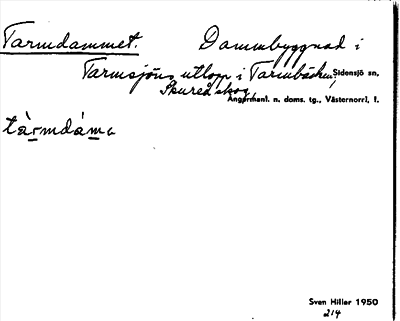 Tarmdammet. Dammbyggnad i
Tarmsjöns utlopp i Tarmbäcken, Sidensjö sn.
Skureå skog, Ångermanl. n. doms. tg., Västernorrl. l.
tàrmdáma
Sven Hiller 1950
214